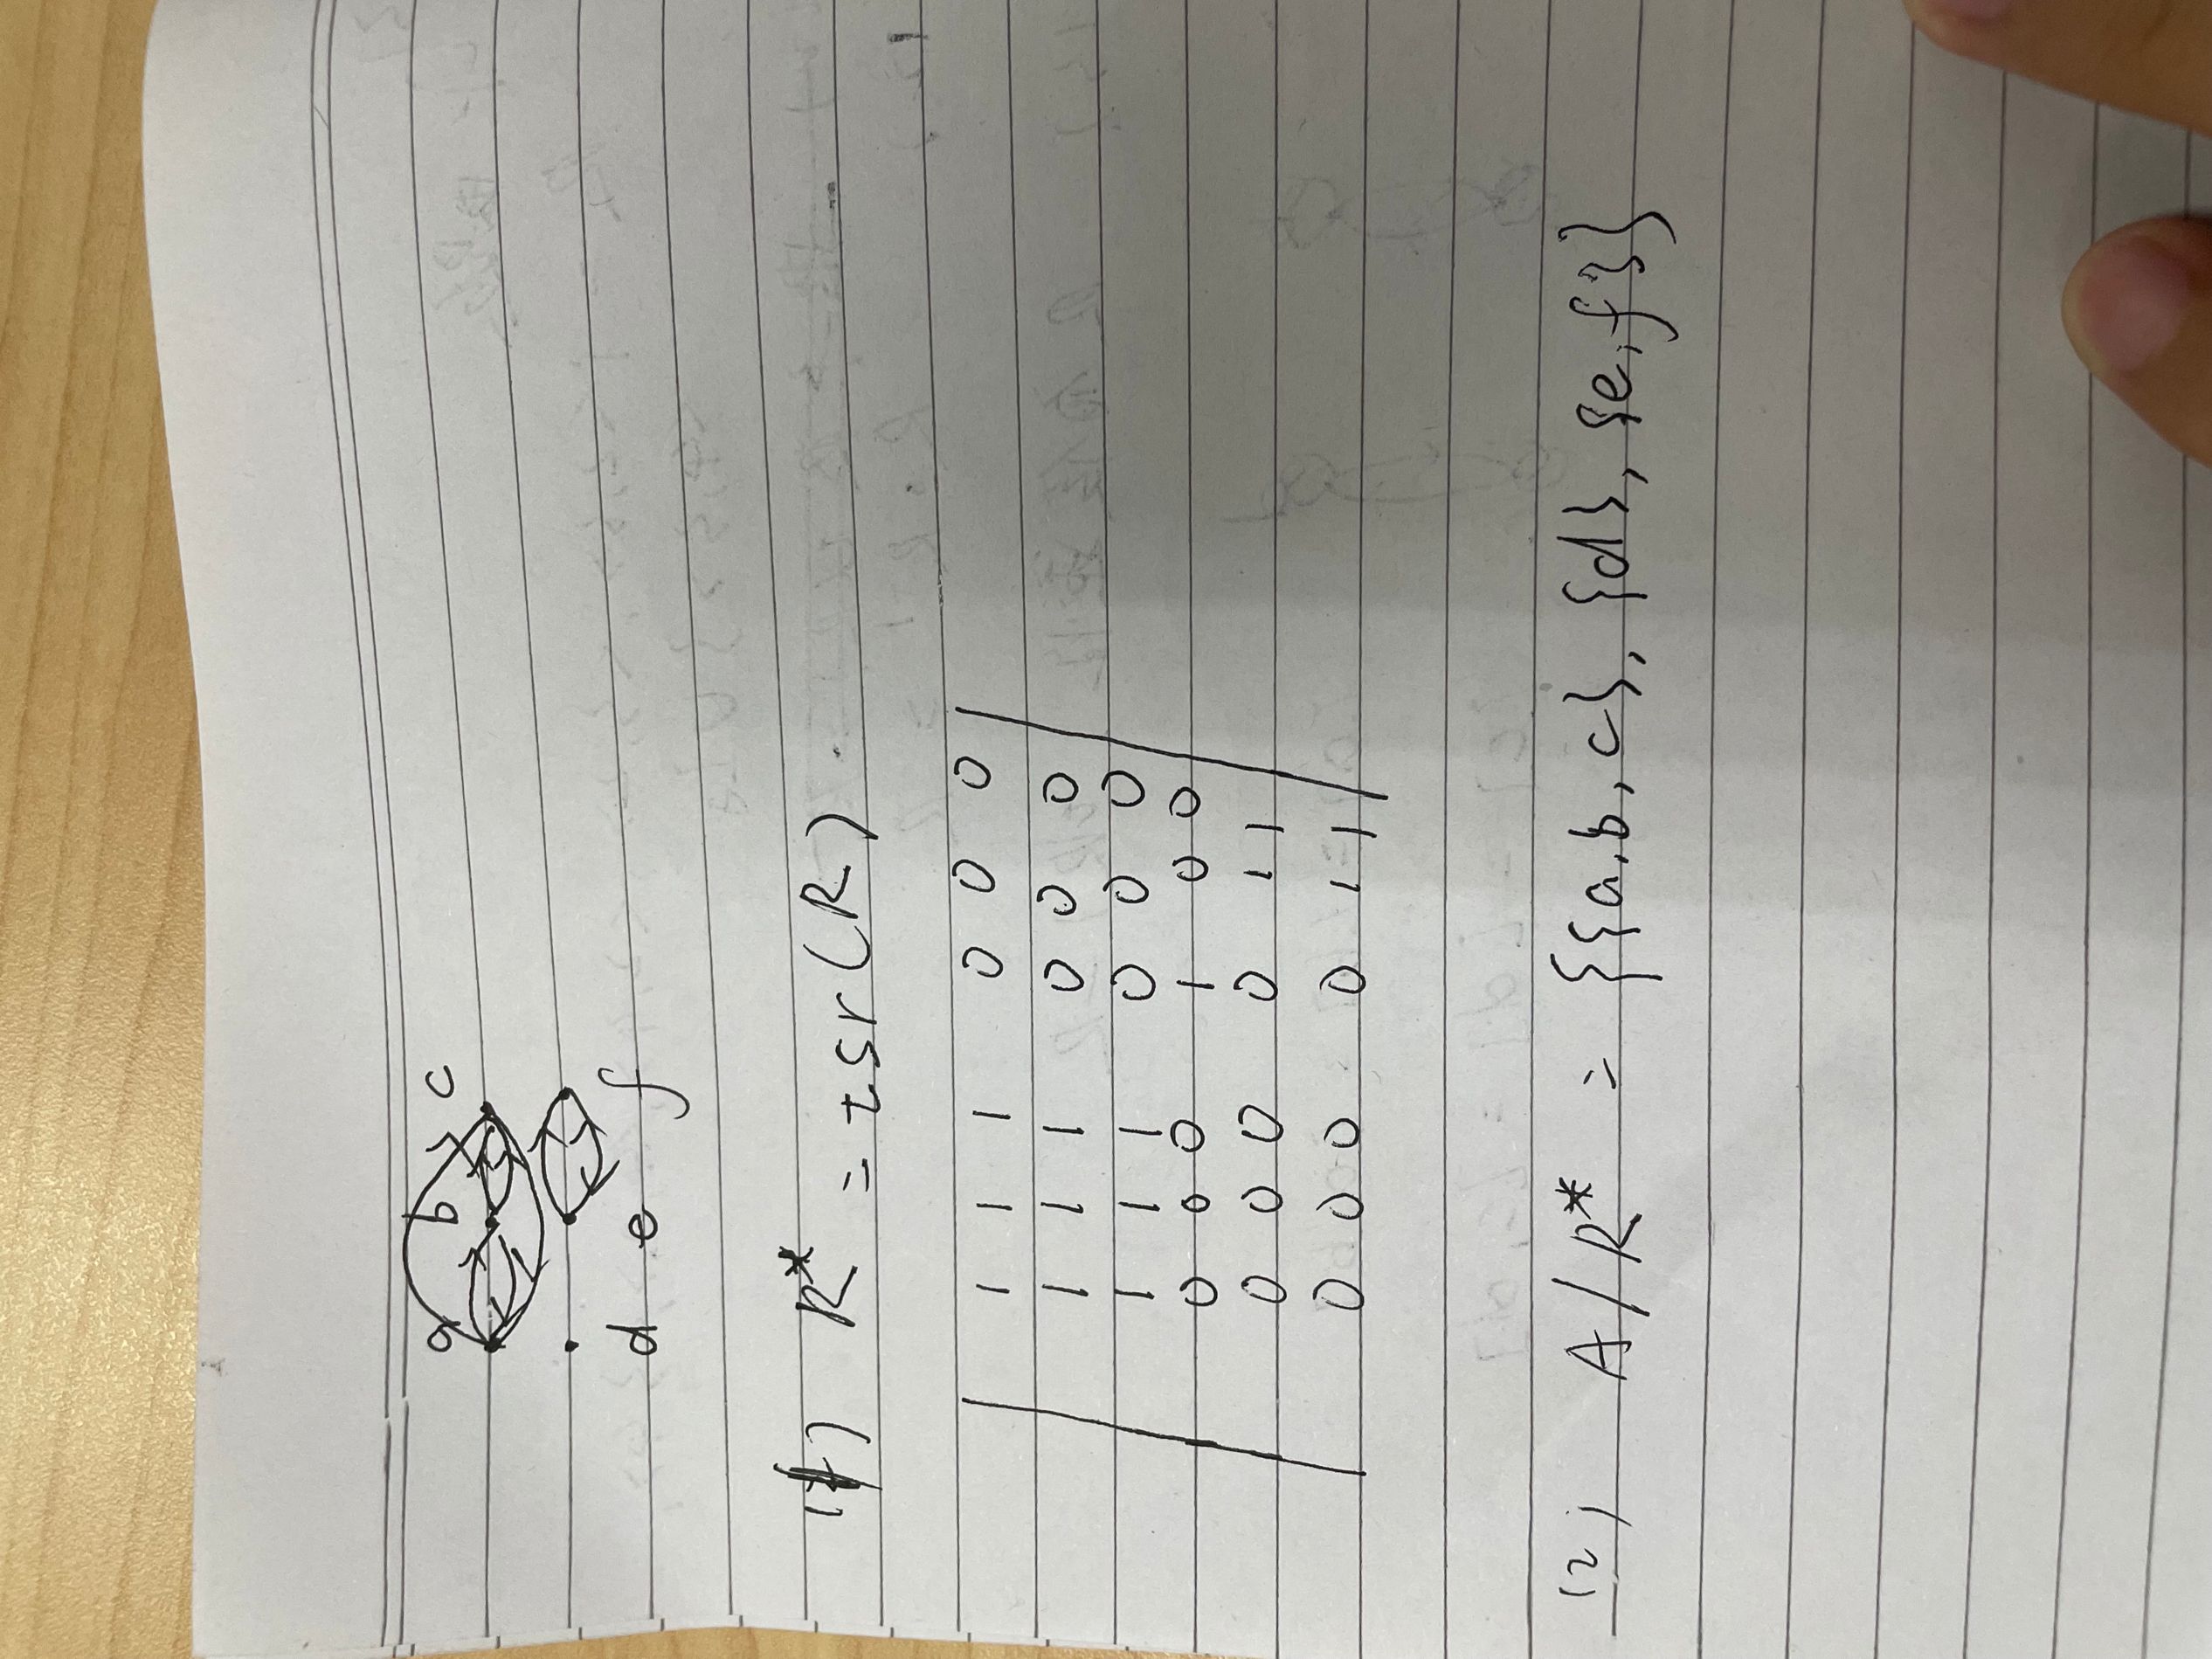 a b c
d e f
(1) R* = tsr(R)
1 1 1 0 0 0
1 1 1 0 0 0
1 1 1 0 0 0
0 0 0 1 0 0
0 0 0 0 1 1
0 0 0 0 1 1
(2) A/R* = {{a,b,c}, {d}, {e,f}}